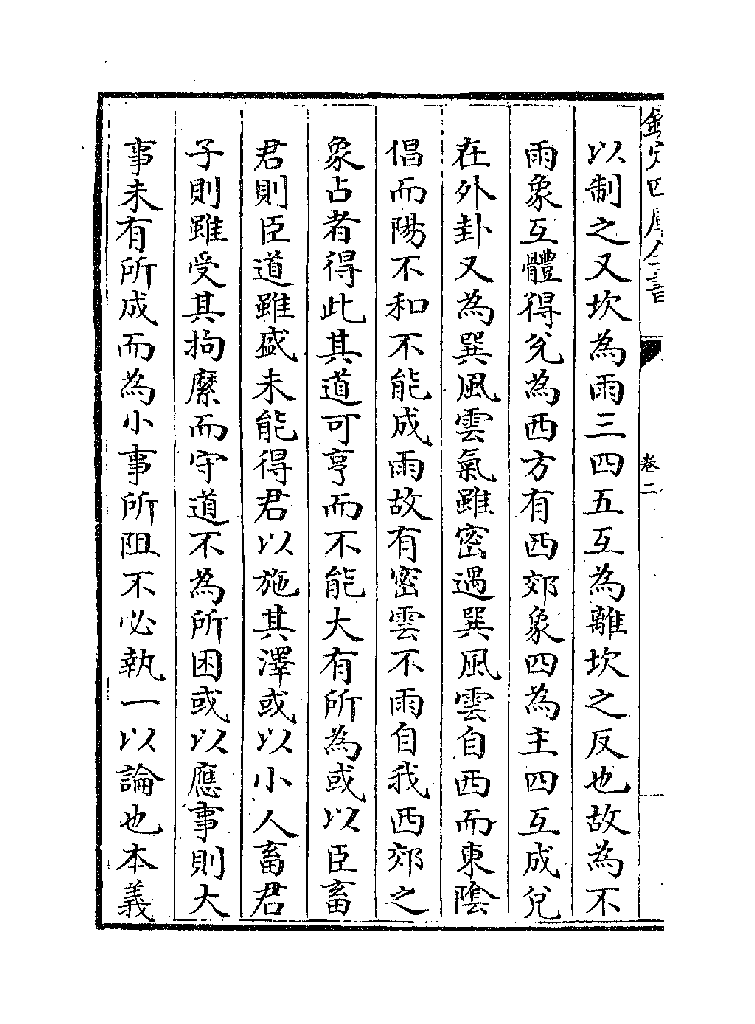 欽定四庫全書
卷二
以制之又坎為雨三四五互為離坎之反也故為不
雨象互體得兊為西方有西郊象四為主四互成兊
在外卦又為巽風雲氣雖密遇巽風雲自西而東隂
倡而陽不和不能成雨故有密雲不雨自我西郊之
象占者得此其道可亨而不能大有所為或以臣畜
君則臣道雖盛未能得君以施其澤或以小人畜君
子則雖受其拘縻而守道不為所困或以應事則大
事未有所成而為小事所阻不必執一以論也本義